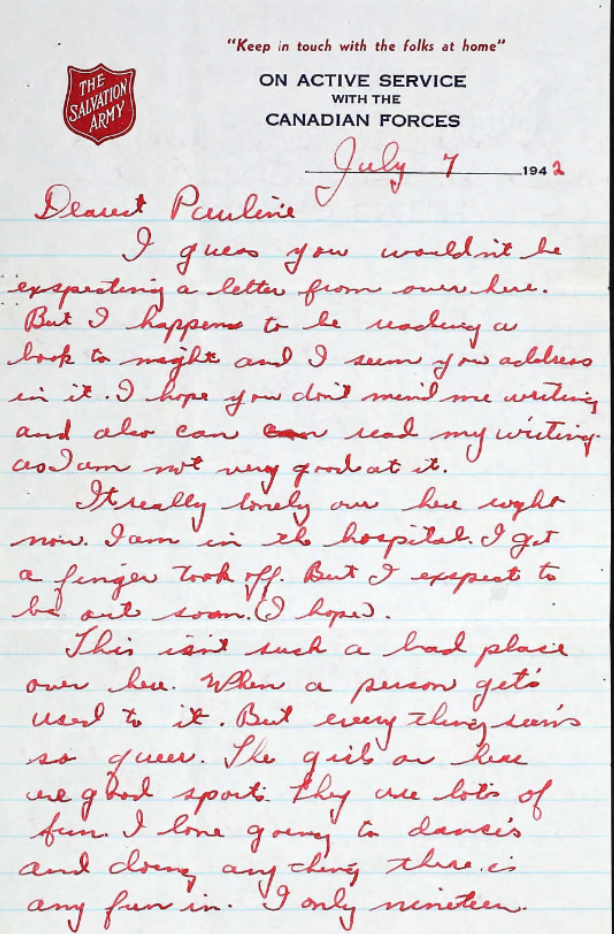 "Keep in touch with the folks at home"
THE
SALVATION
ARMY
ON ACTIVE SERVICE
WITH THE
CANADIAN FORCES
July 7 1942
Dearest Pauline
I guess you wouldn't be
exspecting a letter from over here.
But I happens to be reading a
book to night and I seen you address
in it. I hope you don't mind me writing
and also can can read my writing.
as I am not very good at it.
It really lonely over here right
now. I am in the hospital. I got
a finger took off. But I exspect to
be out soon. (I hope).
This isn't such a bad place
over here. When a person get's
used to it. But every thing seem's
so queer. The girls over here
are good sports. They are lots of
fun. I love going to dance's
and doing any thing there is
any fun in. I only nineteen.